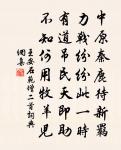 中原秦鹿待新羈
力戰紛紛此一時
有道吊民天即助
不知何用牧羊兒
王安石范增二首詞典
網集